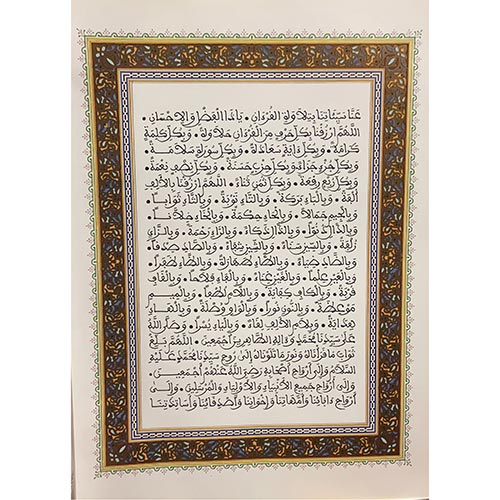 عَنَّا سَيِّئَاتِنَا بِتِلَاوَةِ الْقُرْءَانِ • يَا ذَا الْفَضْلِ وَالْإِحْسَانِ •
اللَّهُمَّ ارْزُقْنَا بِكُلِّ حَرْفٍ مِنَ الْقُرْءَانِ حَلَاوَةً • وَبِكُلِّ كَلِمَةٍ
كَرَامَةً • وَبِكُلِّ ءَايَةٍ سَعَادَةً • وَبِكُلِّ سُورَةٍ سَلَامَةً
وَبِكُلِّ جُزْءٍ جَزَاءً • وَبِكُلِّ حِزْبٍ حَسَنَةً • وَبِكُلِّ نِصْفٍ نِعْمَةً •
وَبِكُلِّ رُبُعٍ رِفْعَةً • وَبِكُلِّ ثُمُنٍ ثَنَاءً • اللَّهُمَّ ارْزُقْنَا بِالْأَلِفِ
أُلْفَةً • وَبِالْبَاءِ بَرَكَةً • وَبِالتَّاءِ تَوْبَةً • وَبِالثَّاءِ ثَوَابًا •
وَبِالْجِيمِ جَمَالًا • وَبِالْحَاءِ حِكْمَةً • وَبِالْخَاءِ خِلَاناً •
وَبِالدَّالِ دُنُوًّا • وَبِالذَّالِ ذَكَاءً • وَبِالرَّاءِ رَحْمَةً • وَبِالزَّايِ
زُلْفَةً • وَبِالسِّينِ سَنَاءً • وَبِالشِّينِ شِفَاءً • وَبِالصَّادِ صِدْقًا •
وَبِالضَّادِ ضِيَاءً • وَبِالطَّاءِ طَهَارَةً • وَبِالظَّاءِ ظَفَرًا •
وَبِالْعَيْنِ عِلْمًا • وَبِالْغَيْنِ غِنَاءً • وَبِالْفَاءِ فَلَاحًا • وَبِالْقَافِ
قُرْبَةً • وَبِالْكَافِ كِفَايَةً • وَبِاللَّامِ لُطْفًا • وَبِالْمِيمِ
مَوْعِظَةً • وَبِالنُّونِ نُورًا • وَبِالْوَاوِ وُصْلَةً • وَبِالْهَاءِ
هِدَايَةً • وَبِلَامِ الْأَلِفِ لِقَاءً • وَبِالْيَاءِ يُسْرًا • وَصَلَّى اللَّهُ
عَلَى سَيِّدِنَا مُحَمَّدٍ وَءَالِهِ الطَّاهِرِينَ أَجْمَعِينَ • اللَّهُمَّ بَلِّغْ
ثَوَابَ مَا قَرَأْنَاهُ وَنُورَ مَا تَلَوْنَاهُ إِلَى رُوحِ سَيِّدِنَا مُحَمَّدٍ عَلَيْهِ
السَّلَامُ وَإِلَى أَرْوَاحِ أَصْحَابِهِ رَضِيَ اللَّهُ عَنْهُمْ أَجْمَعِينَ •
وَإِلَى أَرْوَاحِ جَمِيعِ الْأَنْبِيَاءِ وَالْأَوْلِيَاءِ وَالْمُرْسَلِينَ • وَإِلَى
أَرْوَاحِ ءَابَائِنَا وَأُمَّهَاتِنَا وَإِخْوَانِنَا وَأَصْدِقَائِنَا وَأَسَاتِذَتِنَا